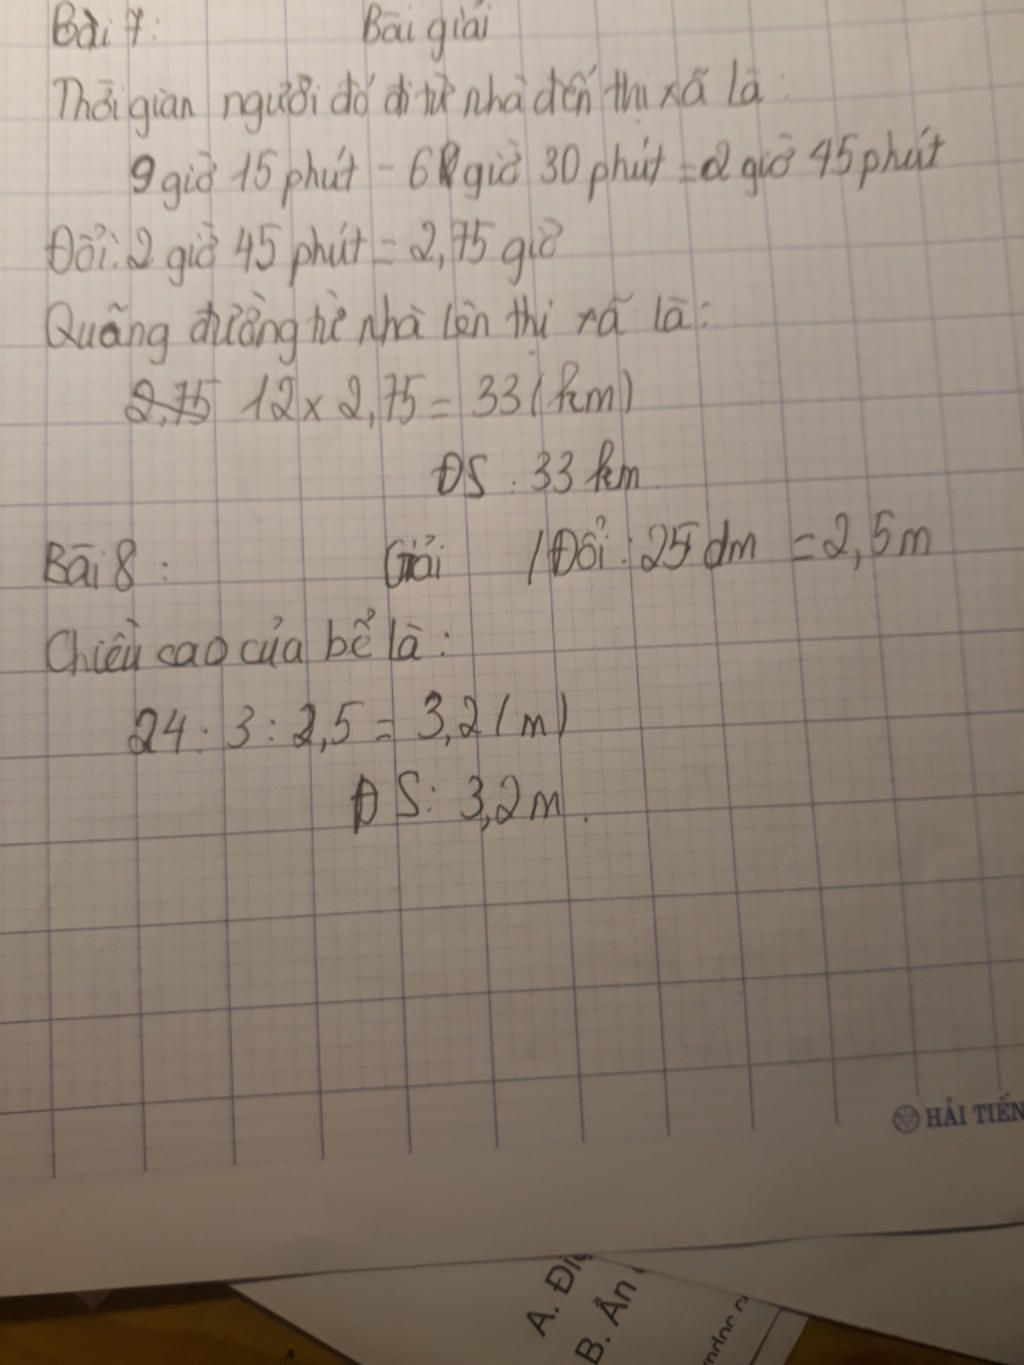 Bài 7: Bài giải
Thời gian người đó đi từ nhà đến thị xã là:
9 giờ 15 phút - 6 giờ 30 phút = 2 giờ 45 phút
Đổi: 2 giờ 45 phút = 2,75 giờ
Quãng đường từ nhà lên thị xã là:
2,75 12 x 2,75 = 33 (km)
ĐS: 33 km
Bài 8: Giải /Đổi: 25 dm = 2,5 m
Chiều cao của bể là:
24 : 3 : 2,5 = 3,2 (m)
ĐS: 3,2 m.
HẢI TIẾN
A. Đi
B. Ấn